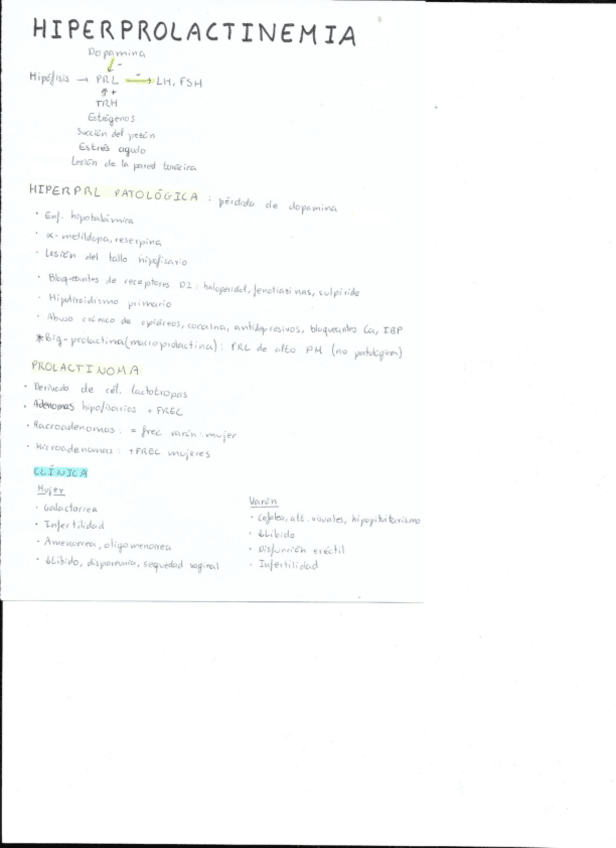 HIPERPROLACTINEMIA
Dopamina
↓ -
Hipófisis → PRL -→ LH, FSH
↑ +
TRH
Estrógenos
Succión del pezón
Estrés agudo
Lesión de la pared torácica
HIPERPRL PATOLÓGICA : pérdida de dopamina
· Enf. hipotalámica
· α-metildopa, reserpina
· Lesión del tallo hipofisario
· Bloqueantes de receptores D2 : haloperidol, fenotiazinas, sulpiride
· Hipotiroidismo primario
· Abuso crónico de opiáceos, cocaína, antidepresivos, bloqueantes Ca, IBP
*Big-prolactina (macroprolactina) : PRL de alto PM (no patológica)
PROLACTINOMA
· Derivado de cél. lactotropas
· Adenomas hipofisarios + FREC
· Macroadenomas : = frec varón : mujer
· Microadenomas : + FREC mujeres
CLÍNICA
Mujer
· Galactorrea
· Infertilidad
· Amenorrea, oligomenorrea
· ↓Libido, dispareunia, sequedad vaginal
Varón
· Cefalea, alt. visuales, hipopituitarismo
· ↓Libido
· Disfunción eréctil
· Infertilidad